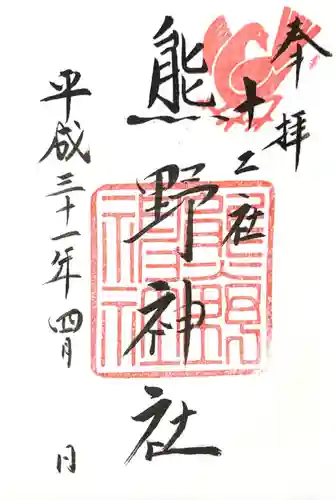 奉拝
十二社
熊野神社
平成三十一年四月 日
熊野
神社